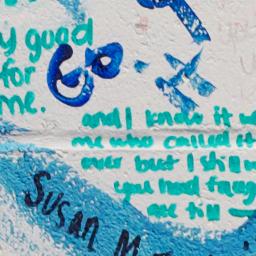 y good
for
me.
Go
and I know it w
me who called it
over but I still w
you had faug
me till
Susan M